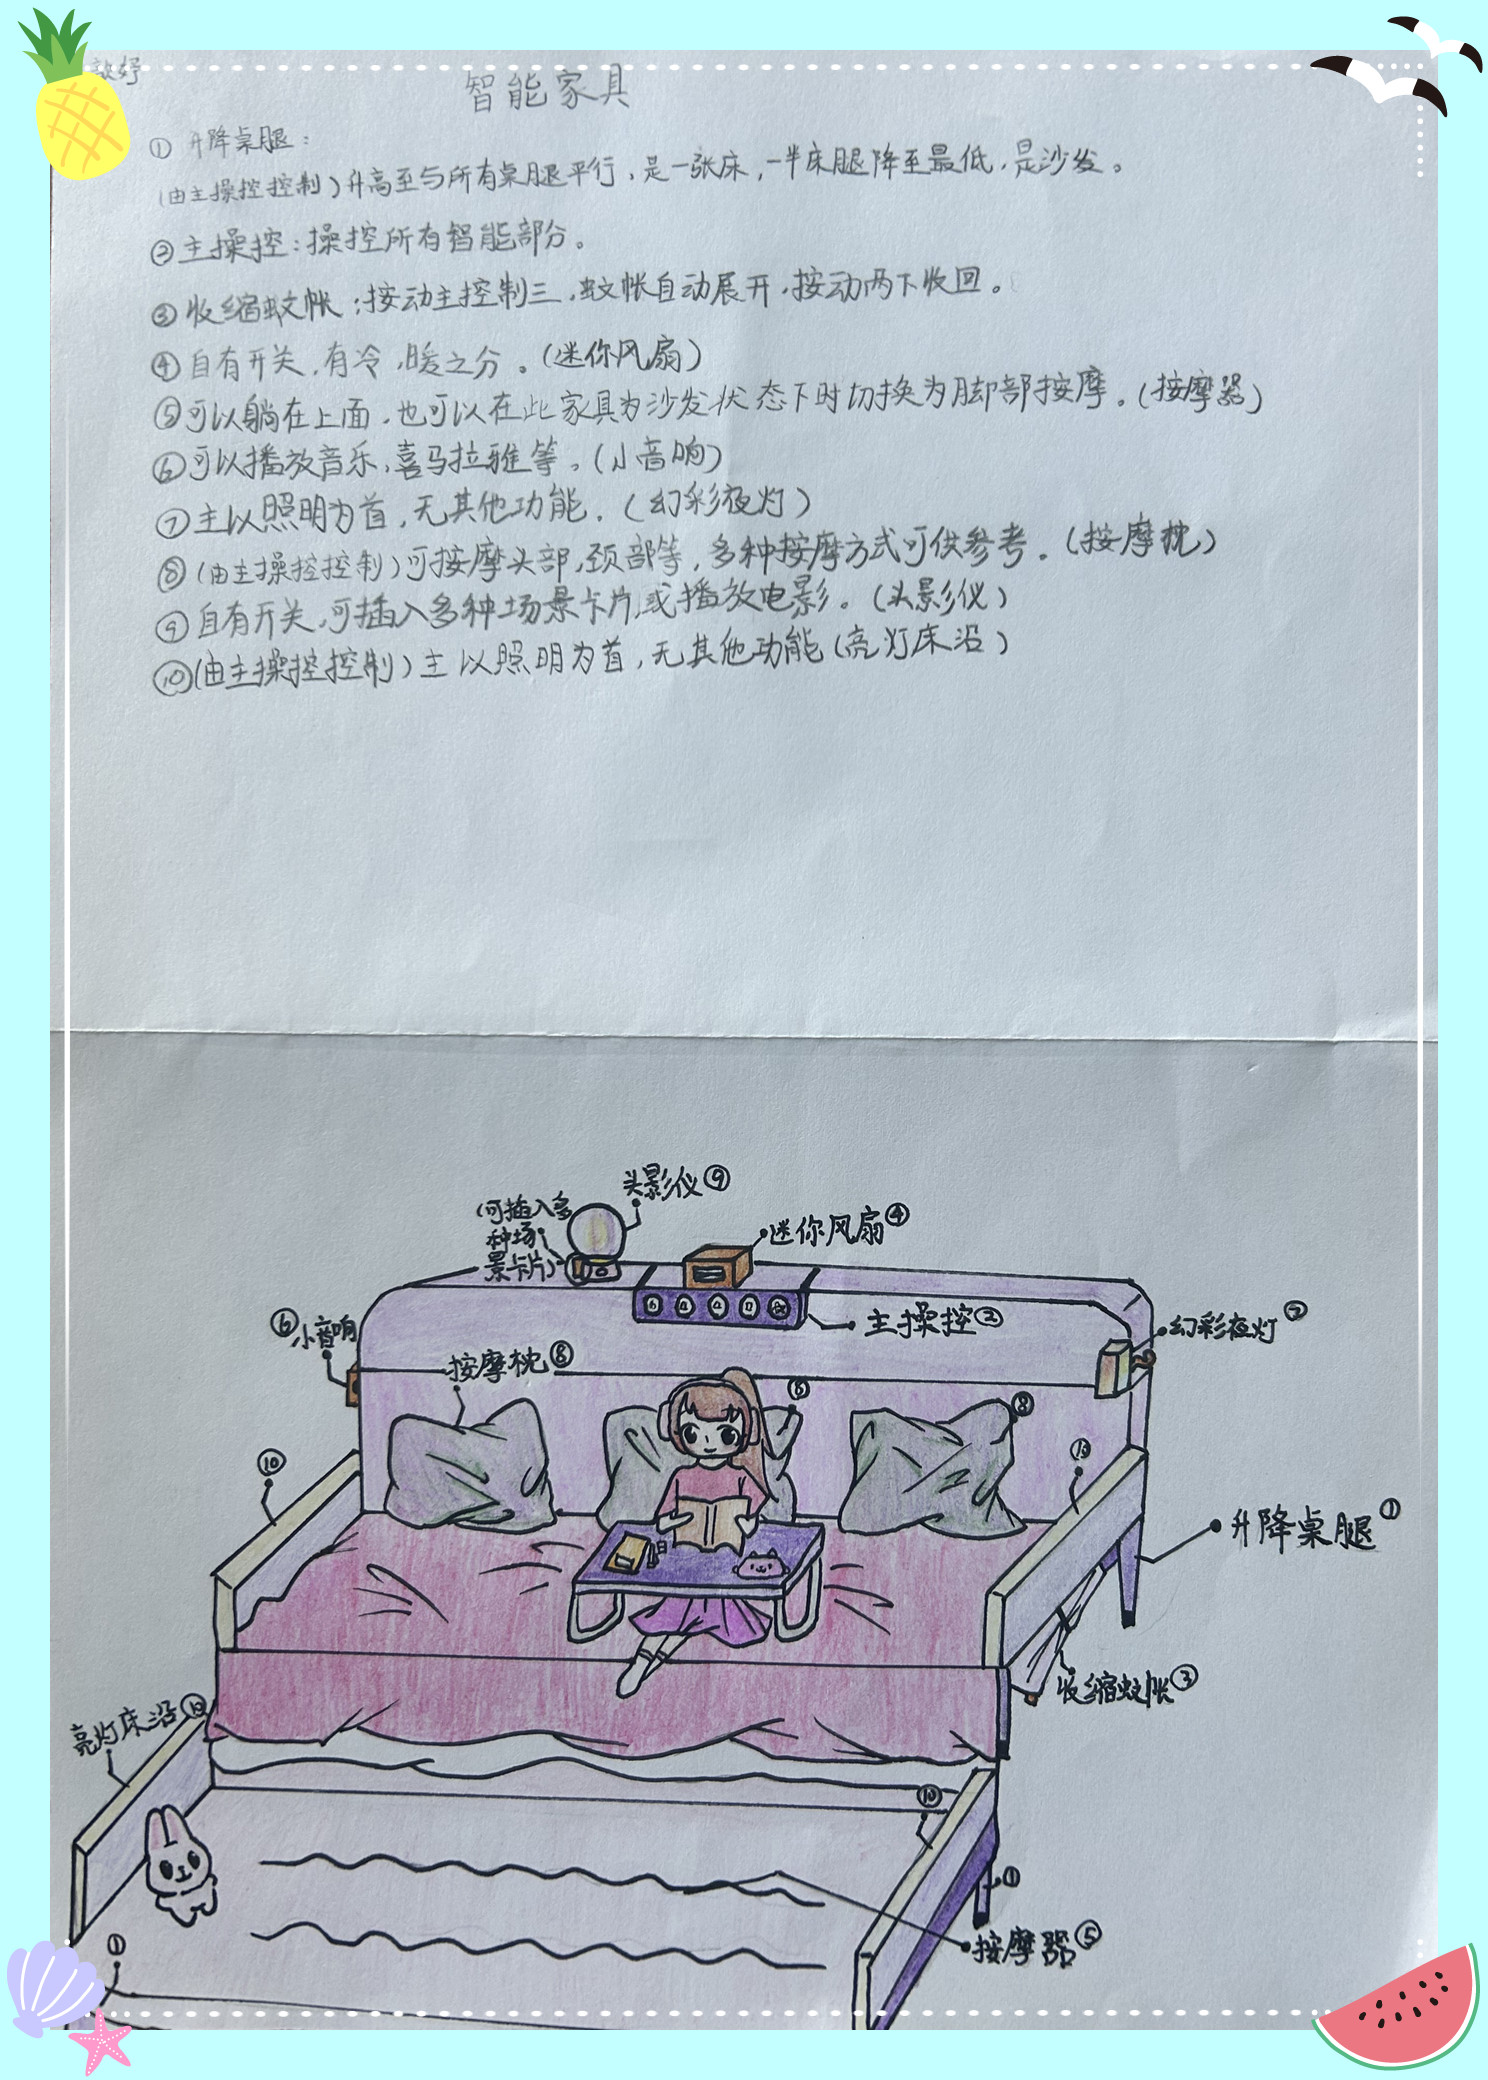 智能家具
① 升降桌腿：
（由主操控控制）升高至与所有桌腿平行，是一张床，一半床腿降至最低，是沙发。
②主操控：操控所有智能部分。
③收缩蚊帐：按动主控制三，蚊帐自动展开，按动两下收回。
④自有开关，有冷，暖之分。（迷你风扇）
⑤可以躺在上面，也可以在此家具为沙发状态下时切换为脚部按摩。（按摩器）
⑥可以播放音乐，喜马拉雅等。（小音响）
⑦主以照明为首，无其他功能。（幻彩夜灯）
⑧（由主操控控制）可按摩头部，颈部等，多种按摩方式可供参考。（按摩枕）
⑨自有开关，可插入多种场景卡片，或播放电影。（头影仪）
⑩（由主操控控制）主以照明为首，无其他功能（亮灯床沿）
头影仪⑨
（可插入多
种场
景卡片）
迷你风扇④
主操控②
幻彩夜灯⑦
⑥小音响
按摩枕⑧
⑧
⑧
⑩
⑩
升降桌腿①
收缩蚊帐③
亮灯床沿⑩
⑩
①
按摩器⑤
①